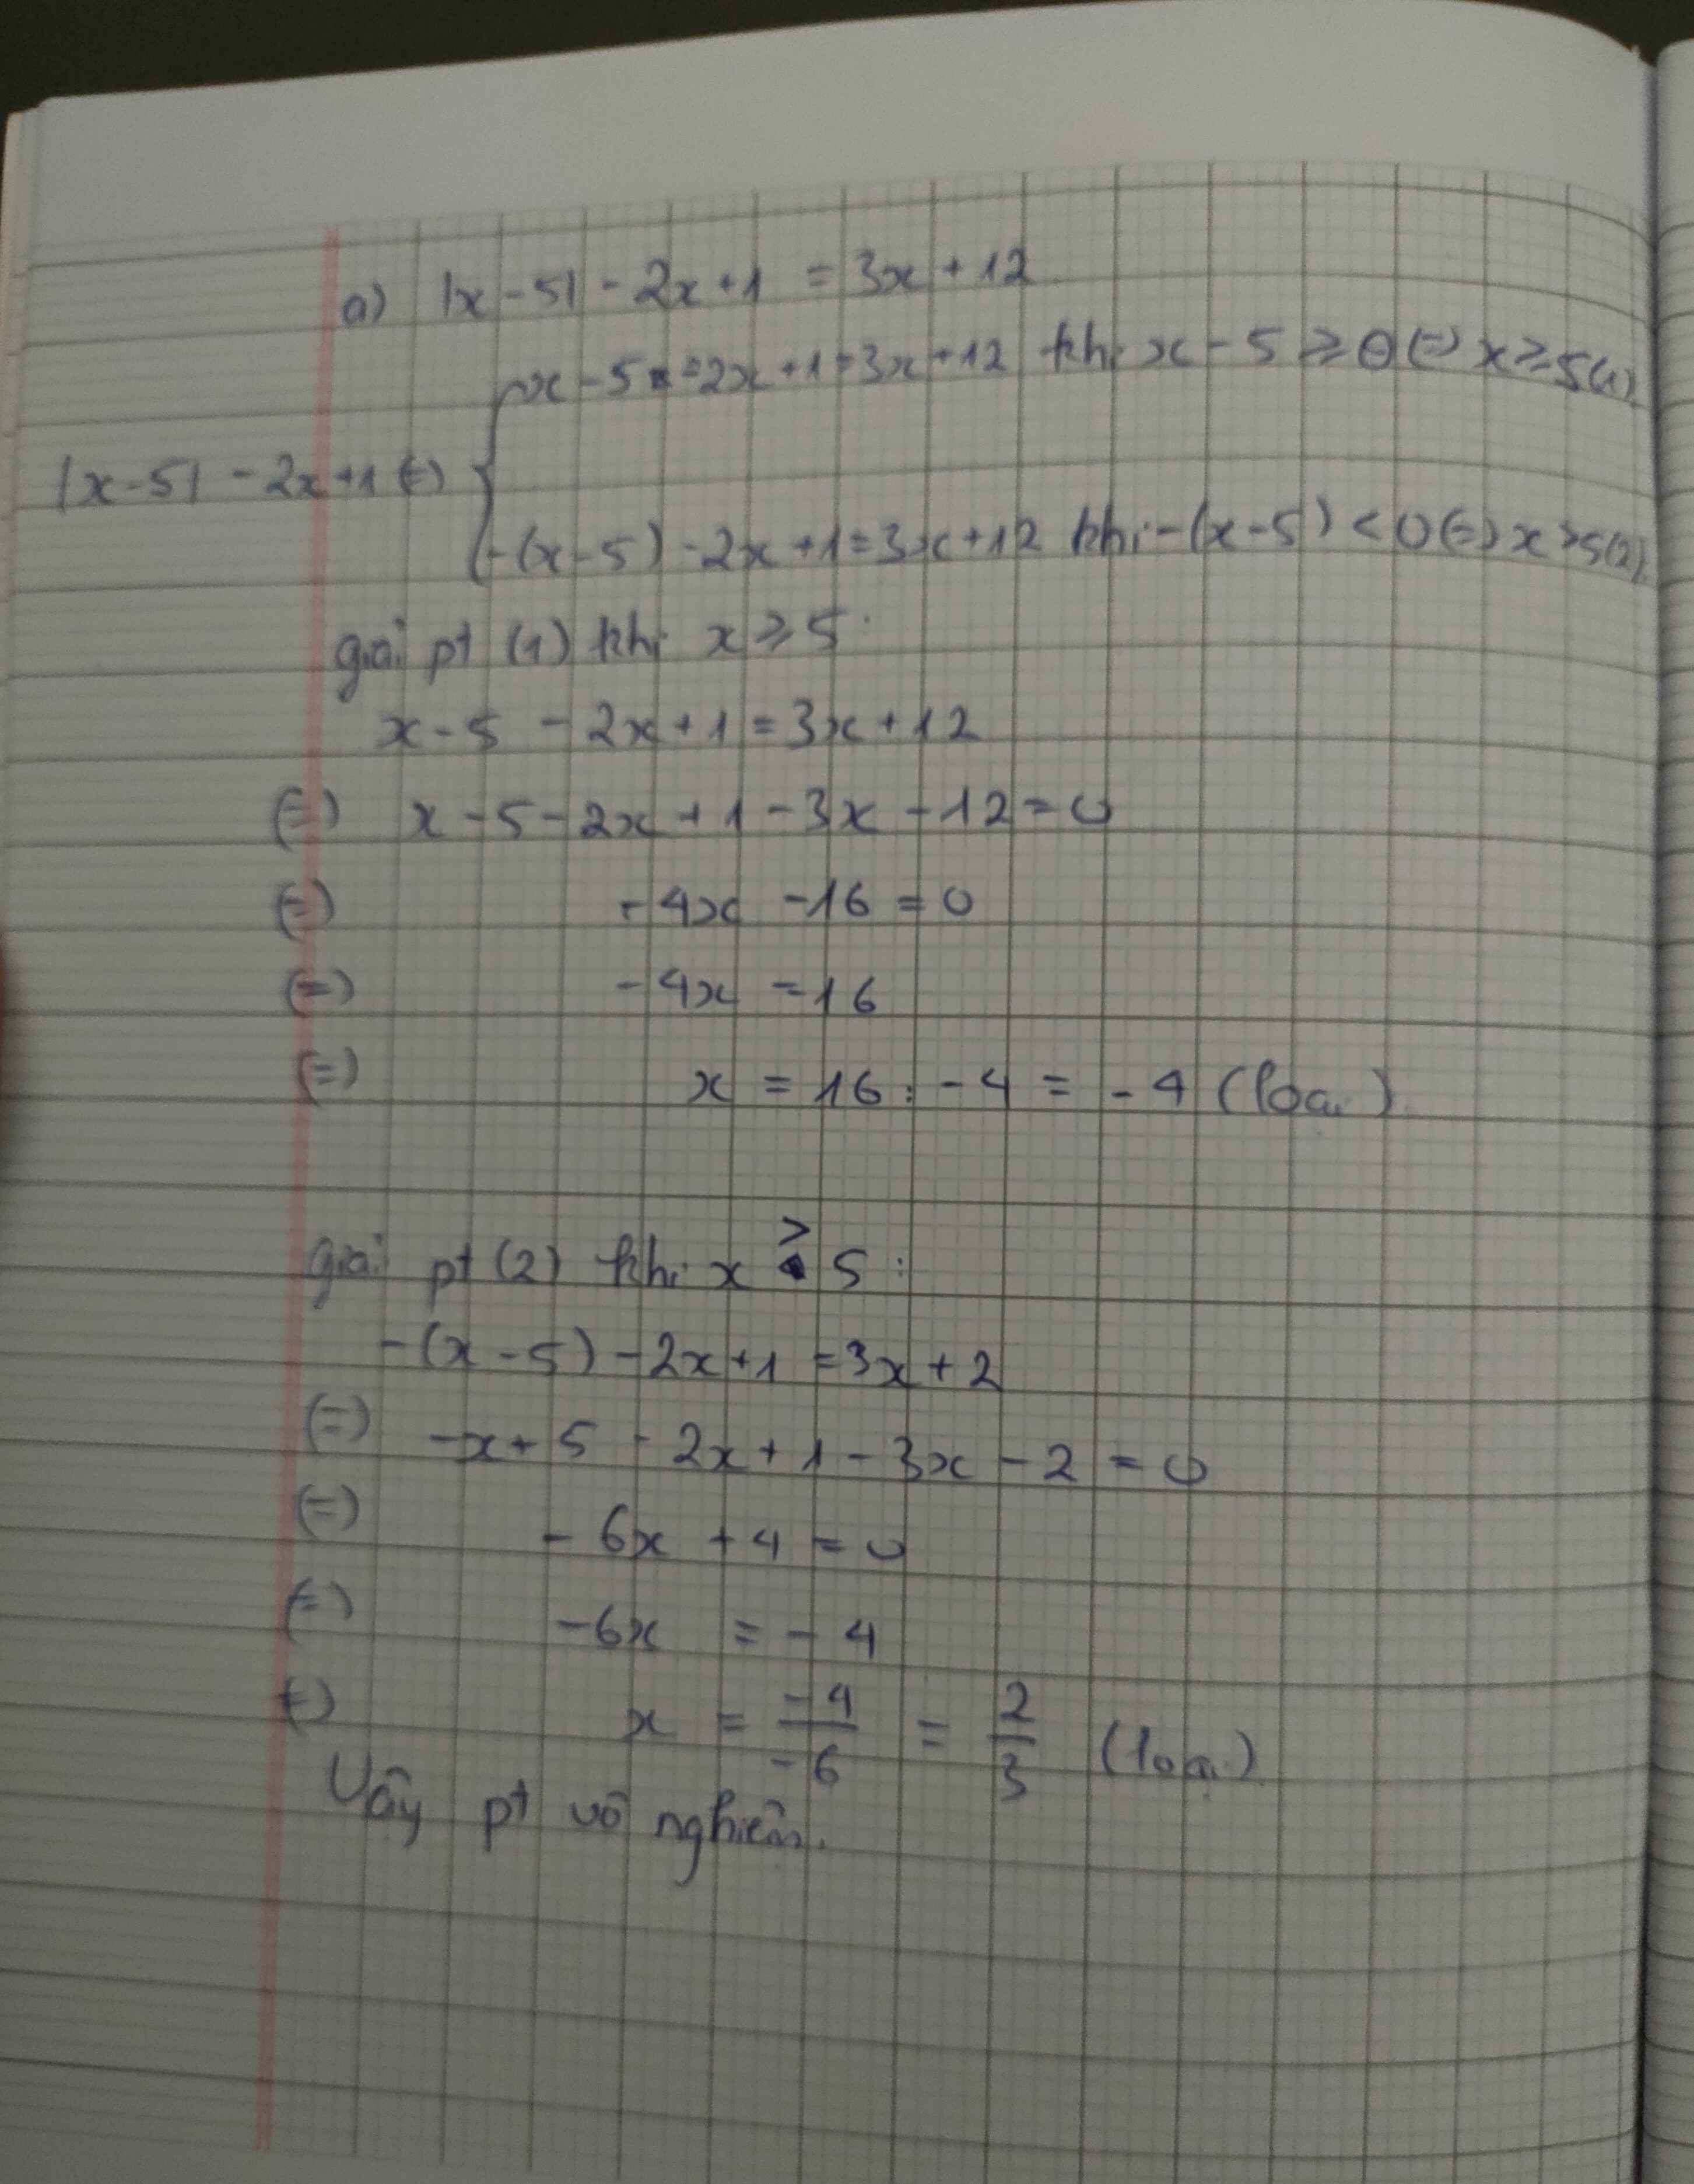 a) |x - 5| - 2x + 1 = 3x + 12
x - 5 - 2x + 1 = 3x + 12 khi x - 5 ≥ 0 (=) x ≥ 5 (1)
|x - 5| - 2x + 1 (=) {
-(x - 5) - 2x + 1 = 3x + 12 khi -(x - 5) < 0 (=) x > 5 (2)
giải pt (1) khi x ≥ 5 :
x - 5 - 2x + 1 = 3x + 12
(=) x - 5 - 2x + 1 - 3x - 12 = 0
(=) -4x - 16 = 0
(=) -4x = 16
(=) x = 16 : -4 = -4 (loại)
giải pt (2) khi x > 5 :
-(x - 5) - 2x + 1 = 3x + 2
(=) -x + 5 - 2x + 1 - 3x - 2 = 0
(=) - 6x + 4 = 0
(=) -6x = - 4
(=) x = -4/-6 = 2/3 (loại)
Vậy pt vô nghiệm.